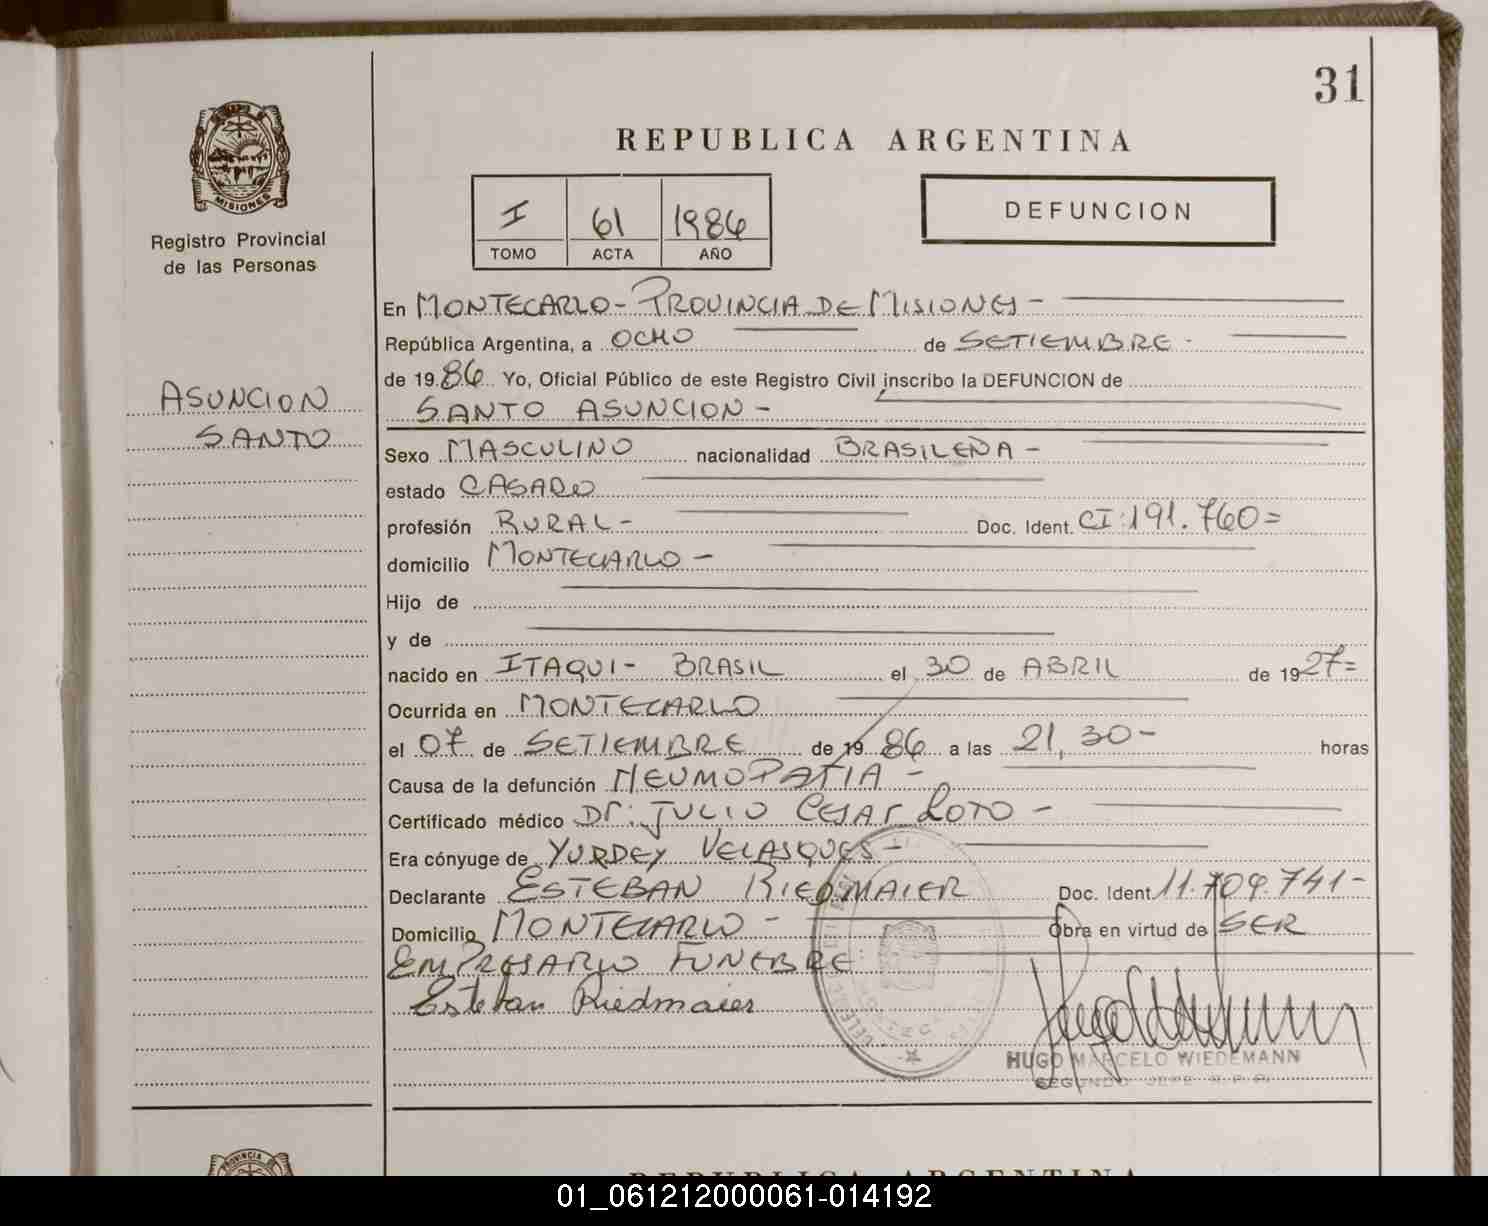 31
REPUBLICA ARGENTINA
MISIONES
Registro Provincial
de las Personas
I 61 1986
TOMO ACTA AÑO
DEFUNCION
ASUNCION
SANTO
En MONTECARLO - PROVINCIA DE MISIONES -
República Argentina, a OCHO de SETIEMBRE -
de 1986 Yo, Oficial Público de este Registro Civil inscribo la DEFUNCION de
SANTO ASUNCION -
Sexo MASCULINO nacionalidad BRASILEÑA -
estado CASADO
profesión RURAL - Doc. Ident. CI: 191.760 =
domicilio MONTECARLO -
Hijo de
y de
nacido en ITAQUI - BRASIL el 30 de ABRIL de 1927 =
Ocurrida en MONTECARLO
el 07 de SETIEMBRE de 1986 a las 21,30 - horas
Causa de la defunción NEUMOPATIA -
Certificado médico Dr: JULIO CESAR LOTO -
Era cónyuge de YURDEY VELASQUES -
Declarante ESTEBAN RIEDMAIER Doc. Ident. 11.709.741 -
Domicilio MONTECARLO - Obra en virtud de SER
EMPRESARIO FUNEBRE
Esteban Riedmaier
HUGO MARCELO WIEDEMANN
SEGUNDO JEFE R.P.P.
PROVINCIA DE
REPUBLICA ARGENTINA
01_061212000061-014192